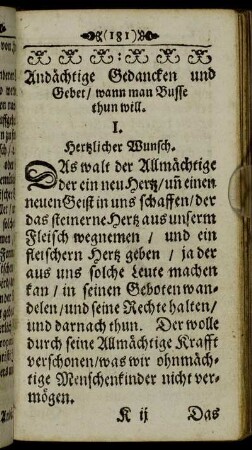 (181)
Andächtige Gedancken und
Gebet / wann man Busse
thun will.
I.
Hertzlicher Wunsch.
DAs walt der Allmächtige
der ein neu Hertz / uñ einen
neuen Geist in uns schaffen / der
das steinerne Hertz aus unserm
Fleisch wegnemen / und ein
fleischern Hertz geben / ja der
aus uns solche Leute machen
kan / in seinen Geboten wan-
delen / und seine Rechte halten /
und darnach thun. Der wolle
durch seine Allmächtige Krafft
verschonen / was wir ohnmäch-
tige Menschenkinder nicht ver-
mögen.
K ij Das